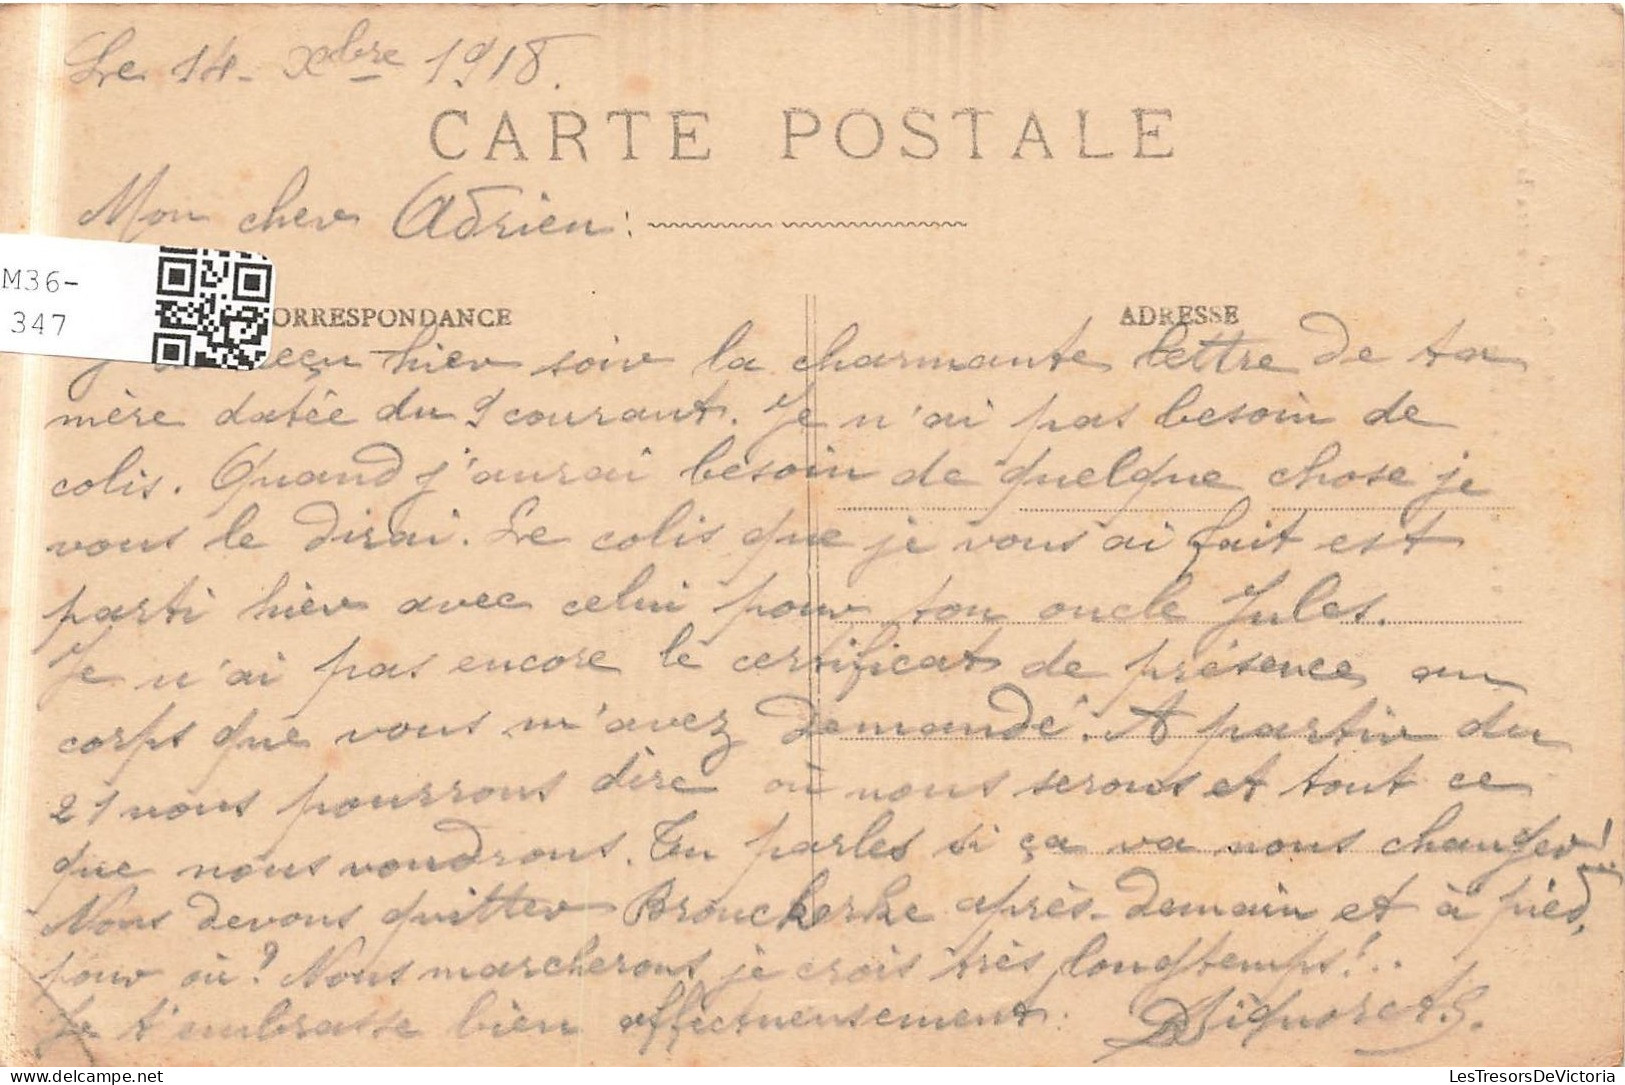 Le 14 - Xbre 1918.
CARTE POSTALE
Mon cher Adrien :
M36-
347
ORRESPONDANCE
ADRESSE
J' reçu hier soir la charmante lettre de ta
mère datée du 9 courant. Je n'ai pas besoin de
colis. Quand j'aurai besoin de quelque chose je
vous le dirai. Le colis que je vous ai fait est
parti hier avec celui pour ton oncle Jules.
Je n'ai pas encore le certificat de présence au
corps que vous m'avez demandé. A partir du
21 nous pourrons dire où nous serons et tout ce
que nous voudrons. Tu parles si ça va nous changer!
Nous devons quitter Brouckerke après-demain et à pied,
pour où? Nous marcherons je crois très longtemps!..
Je t'embrasse bien affectueusement:
LesTresorsDeVictoria.com